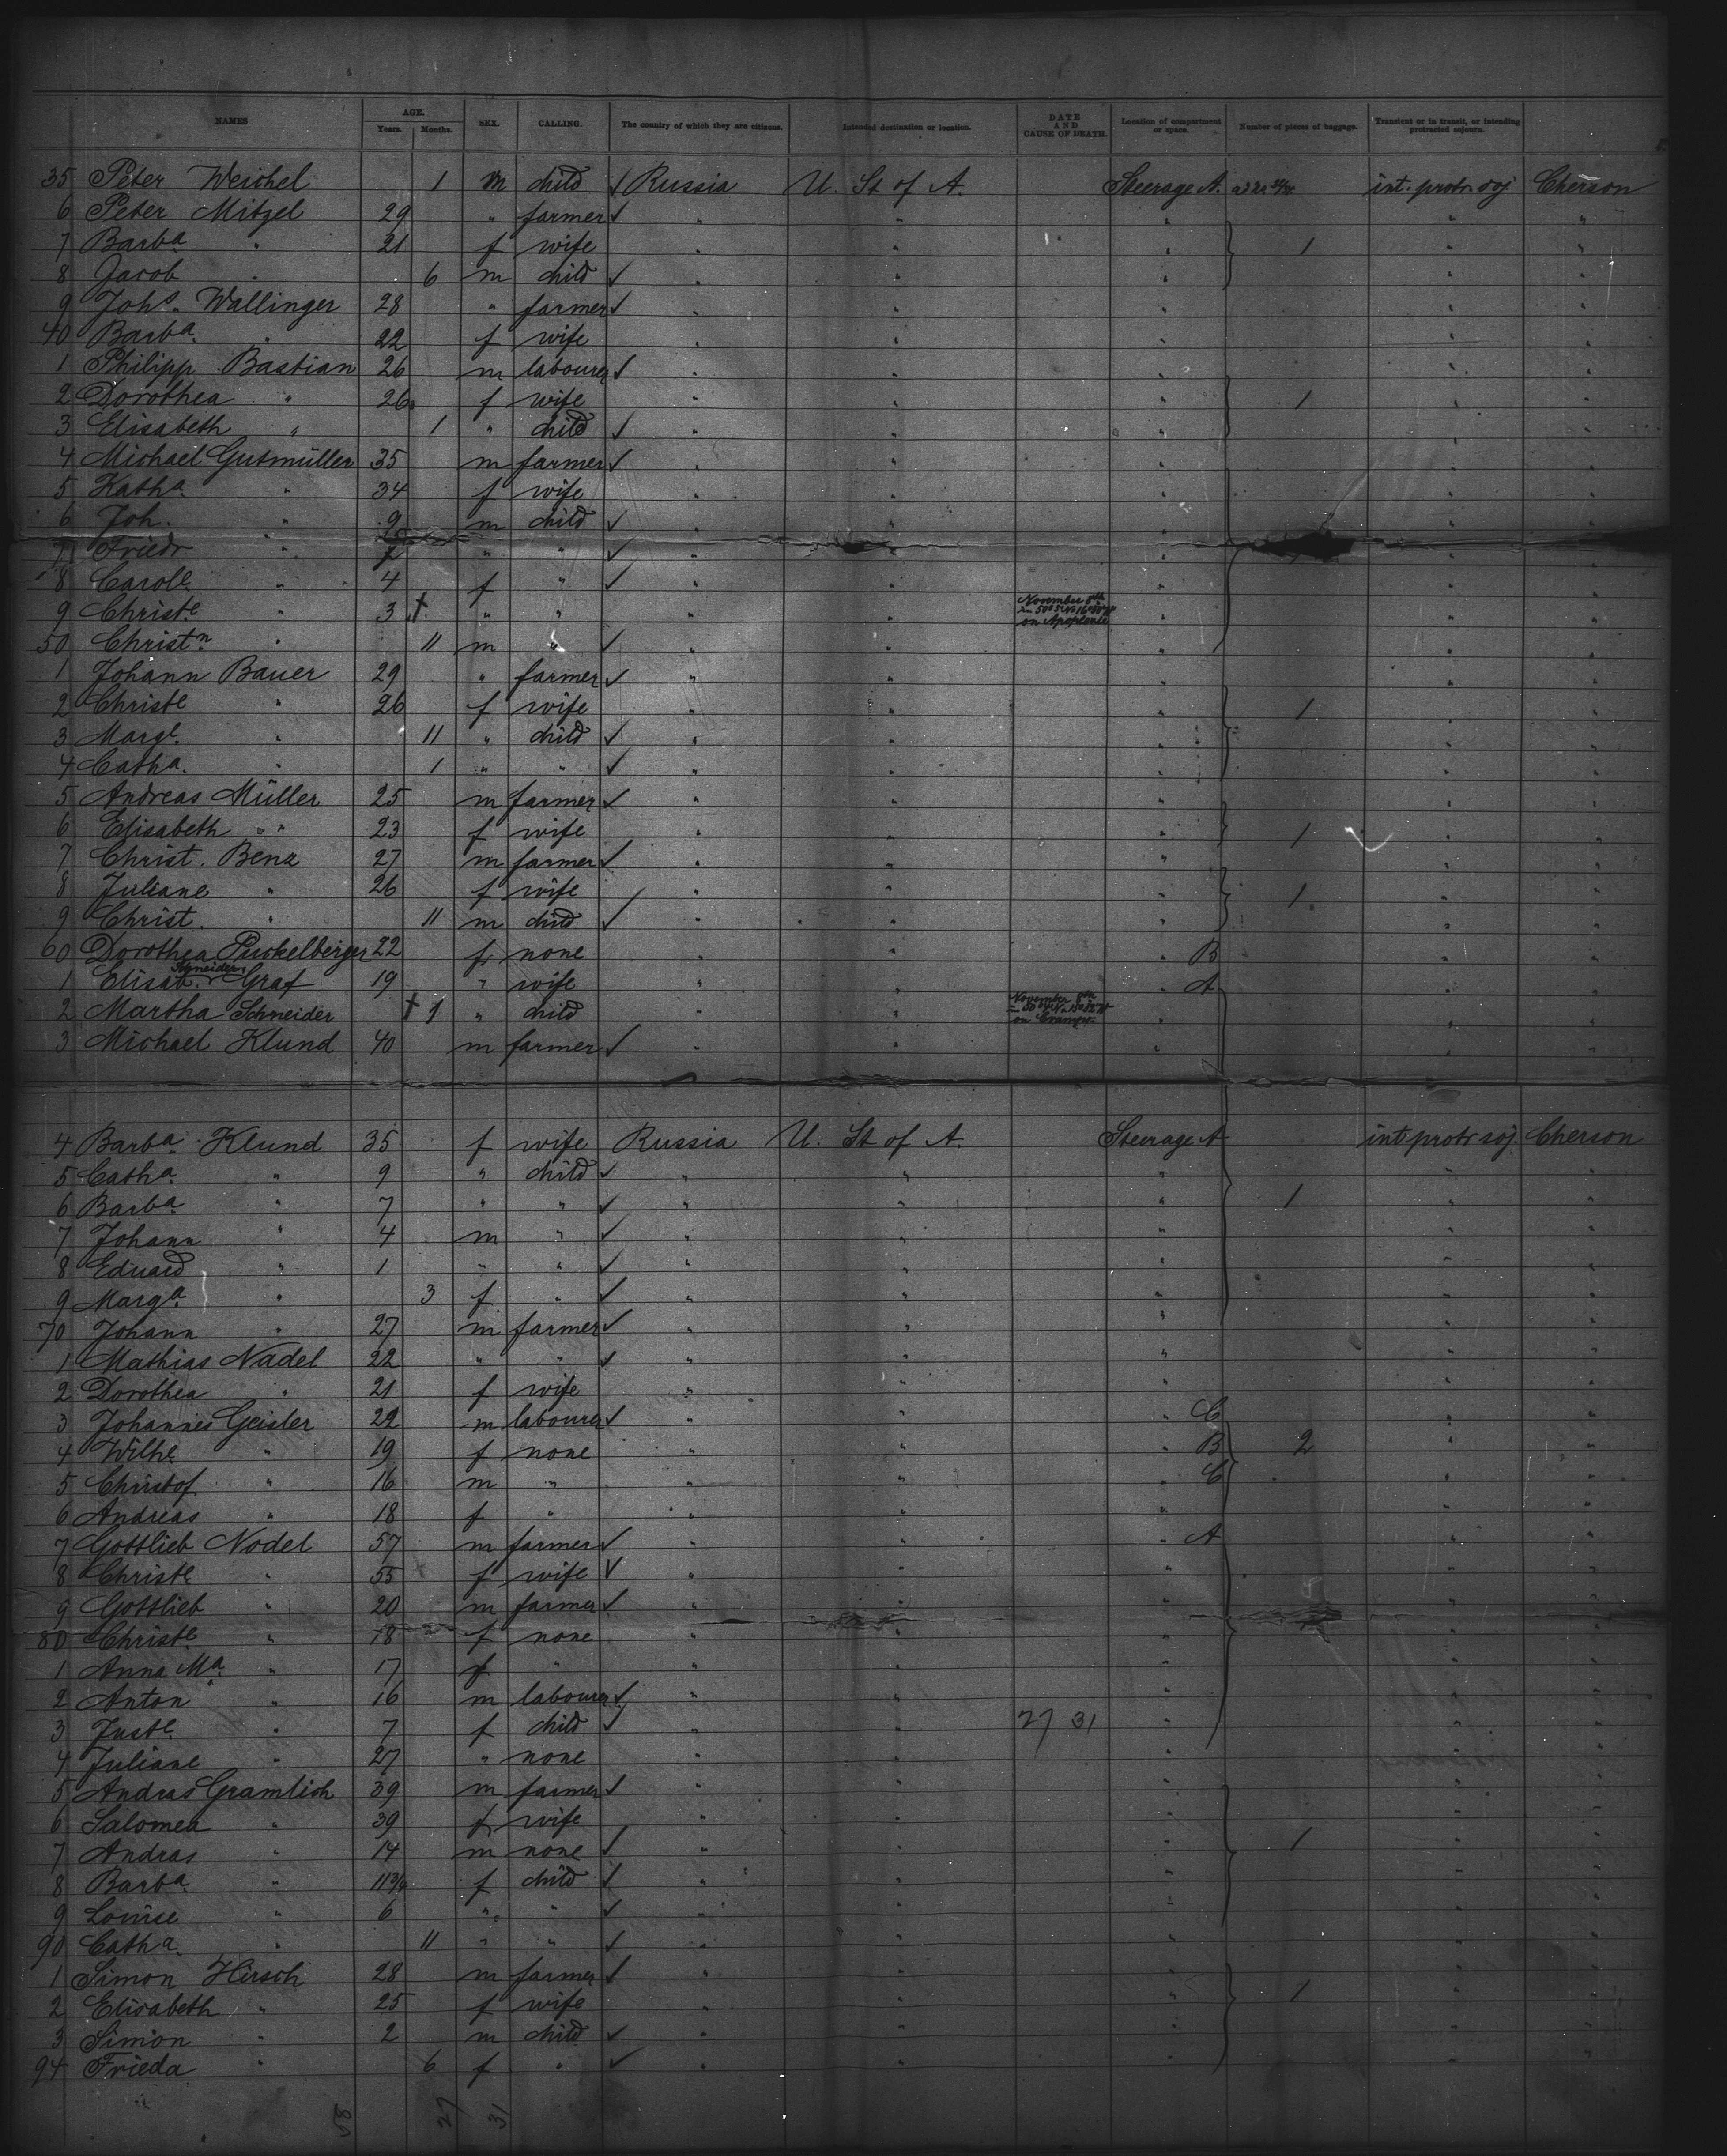 NAMES AGE. Years. Months. SEX. CALLING. The country of which they are citizens. Intended destination or location. DATE AND CAUSE OF DEATH. Location of compartment or space. Number of pieces of baggage. Transient or in transit, or intending protracted sojourn.
35 Peter Weichel 1 m child ✓ Russia U. St of A. Steerage A. int. protr. soj Cherson
6 Peter Mitzel 29 " farmer ✓ " " " " "
7 Barba " 21 f wife " " " 1 " "
8 Jacob " 6 m child ✓ " " " " "
9 Johs. Wallinger 28 " farmer ✓ " " " " "
40 Barba. " 22 f wife " " " " "
1 Philipp Bastian 26 m labourer ✓ " " " " "
2 Dorothea " 26 f wife " " " 1 " "
3 Elisabeth " 1 " child ✓ " " " " "
4 Michael Gutmüller 35 m farmer ✓ " " " " "
5 Katha " 34 f wife " " " " "
6 Joh. " 9 m child ✓ " " " " "
7 Friedr " 7 " " ✓ " " " " "
8 Carole. " 4 f " ✓ " " " " "
9 Christe. " 3 † " " " " November 8th on Apoplexie " " "
50 Christn. " 11 m " ✓ " " " " "
1 Johann Bauer 29 " farmer ✓ " " " " "
2 Christe " 26 f wife " " " 1 " "
3 Marge. " 11 " child ✓ " " " " "
4 Catha. " 1 " " ✓ " " " " "
5 Andreas Müller 25 m farmer ✓ " " " " "
6 Elisabeth " 23 f wife " " " 1 " "
7 Christ. Benz 27 m farmer ✓ " " " " "
8 Juliane " 26 f wife " " " 1 " "
9 Christ. " 11 m child ✓ " " " " "
60 Dorothea Puckelberger 22 f none " " " B " "
1 Elisab. Schneider Graf 19 " wife " " " A " "
2 Martha Schneider † 1 " child " " November 8th " " "
3 Michael Klund 40 m farmer ✓ " " " " "
4 Barba. Klund 35 f wife Russia U. St of A. Steerage A int protr soj. Cherson
5 Catha. " 9 " child ✓ " " " " "
6 Barba " 7 " " ✓ " " " 1 " "
7 Johann " 4 m " ✓ " " " " "
8 Eduard " 1 " " ✓ " " " " "
9 Marga. " 3 f " ✓ " " " " "
70 Johann " 27 m farmer ✓ " " " " "
1 Mathias Nadel 22 " " ✓ " " " " "
2 Dorothea " 21 f wife " " " " "
3 Johannes Geisler 22 m labourer ✓ " " " C " "
4 Wilhe. " 19 f none " " " B 2 " "
5 Christof " 16 m " " " " C " "
6 Andreas " 18 f " " " " " "
7 Gottlieb Nodel 57 m farmer ✓ " " " A " "
8 Christe " 55 f wife ✓ " " " " "
9 Gottlieb " 20 m farmer ✓ " " " " "
80 Christe " 18 f none " " " " "
1 Anna Ma. " 17 f " " " " " "
2 Anton " 16 m labourer ✓ " " " " "
3 Juste. " 7 f child ✓ " " 27 31 " " "
4 Juliane " 27 " none " " " " "
5 Andras Gramlich 39 m farmer ✓ " " " " "
6 Salomea " 39 f wife " " " " "
7 Andras " 14 m none ✓ " " " 1 " "
8 Barba. " 11 f child ✓ " " " " "
9 Louise " 6 " " ✓ " " " " "
90 Catha. " 11 " " ✓ " " " " "
1 Simon Hirsch 28 m farmer ✓ " " " " "
2 Elisabeth " 25 f wife " " " 1 " "
3 Simon " 2 m child ✓ " " " " "
94 Frieda " 6 f " ✓ " " " " "
58 27 31